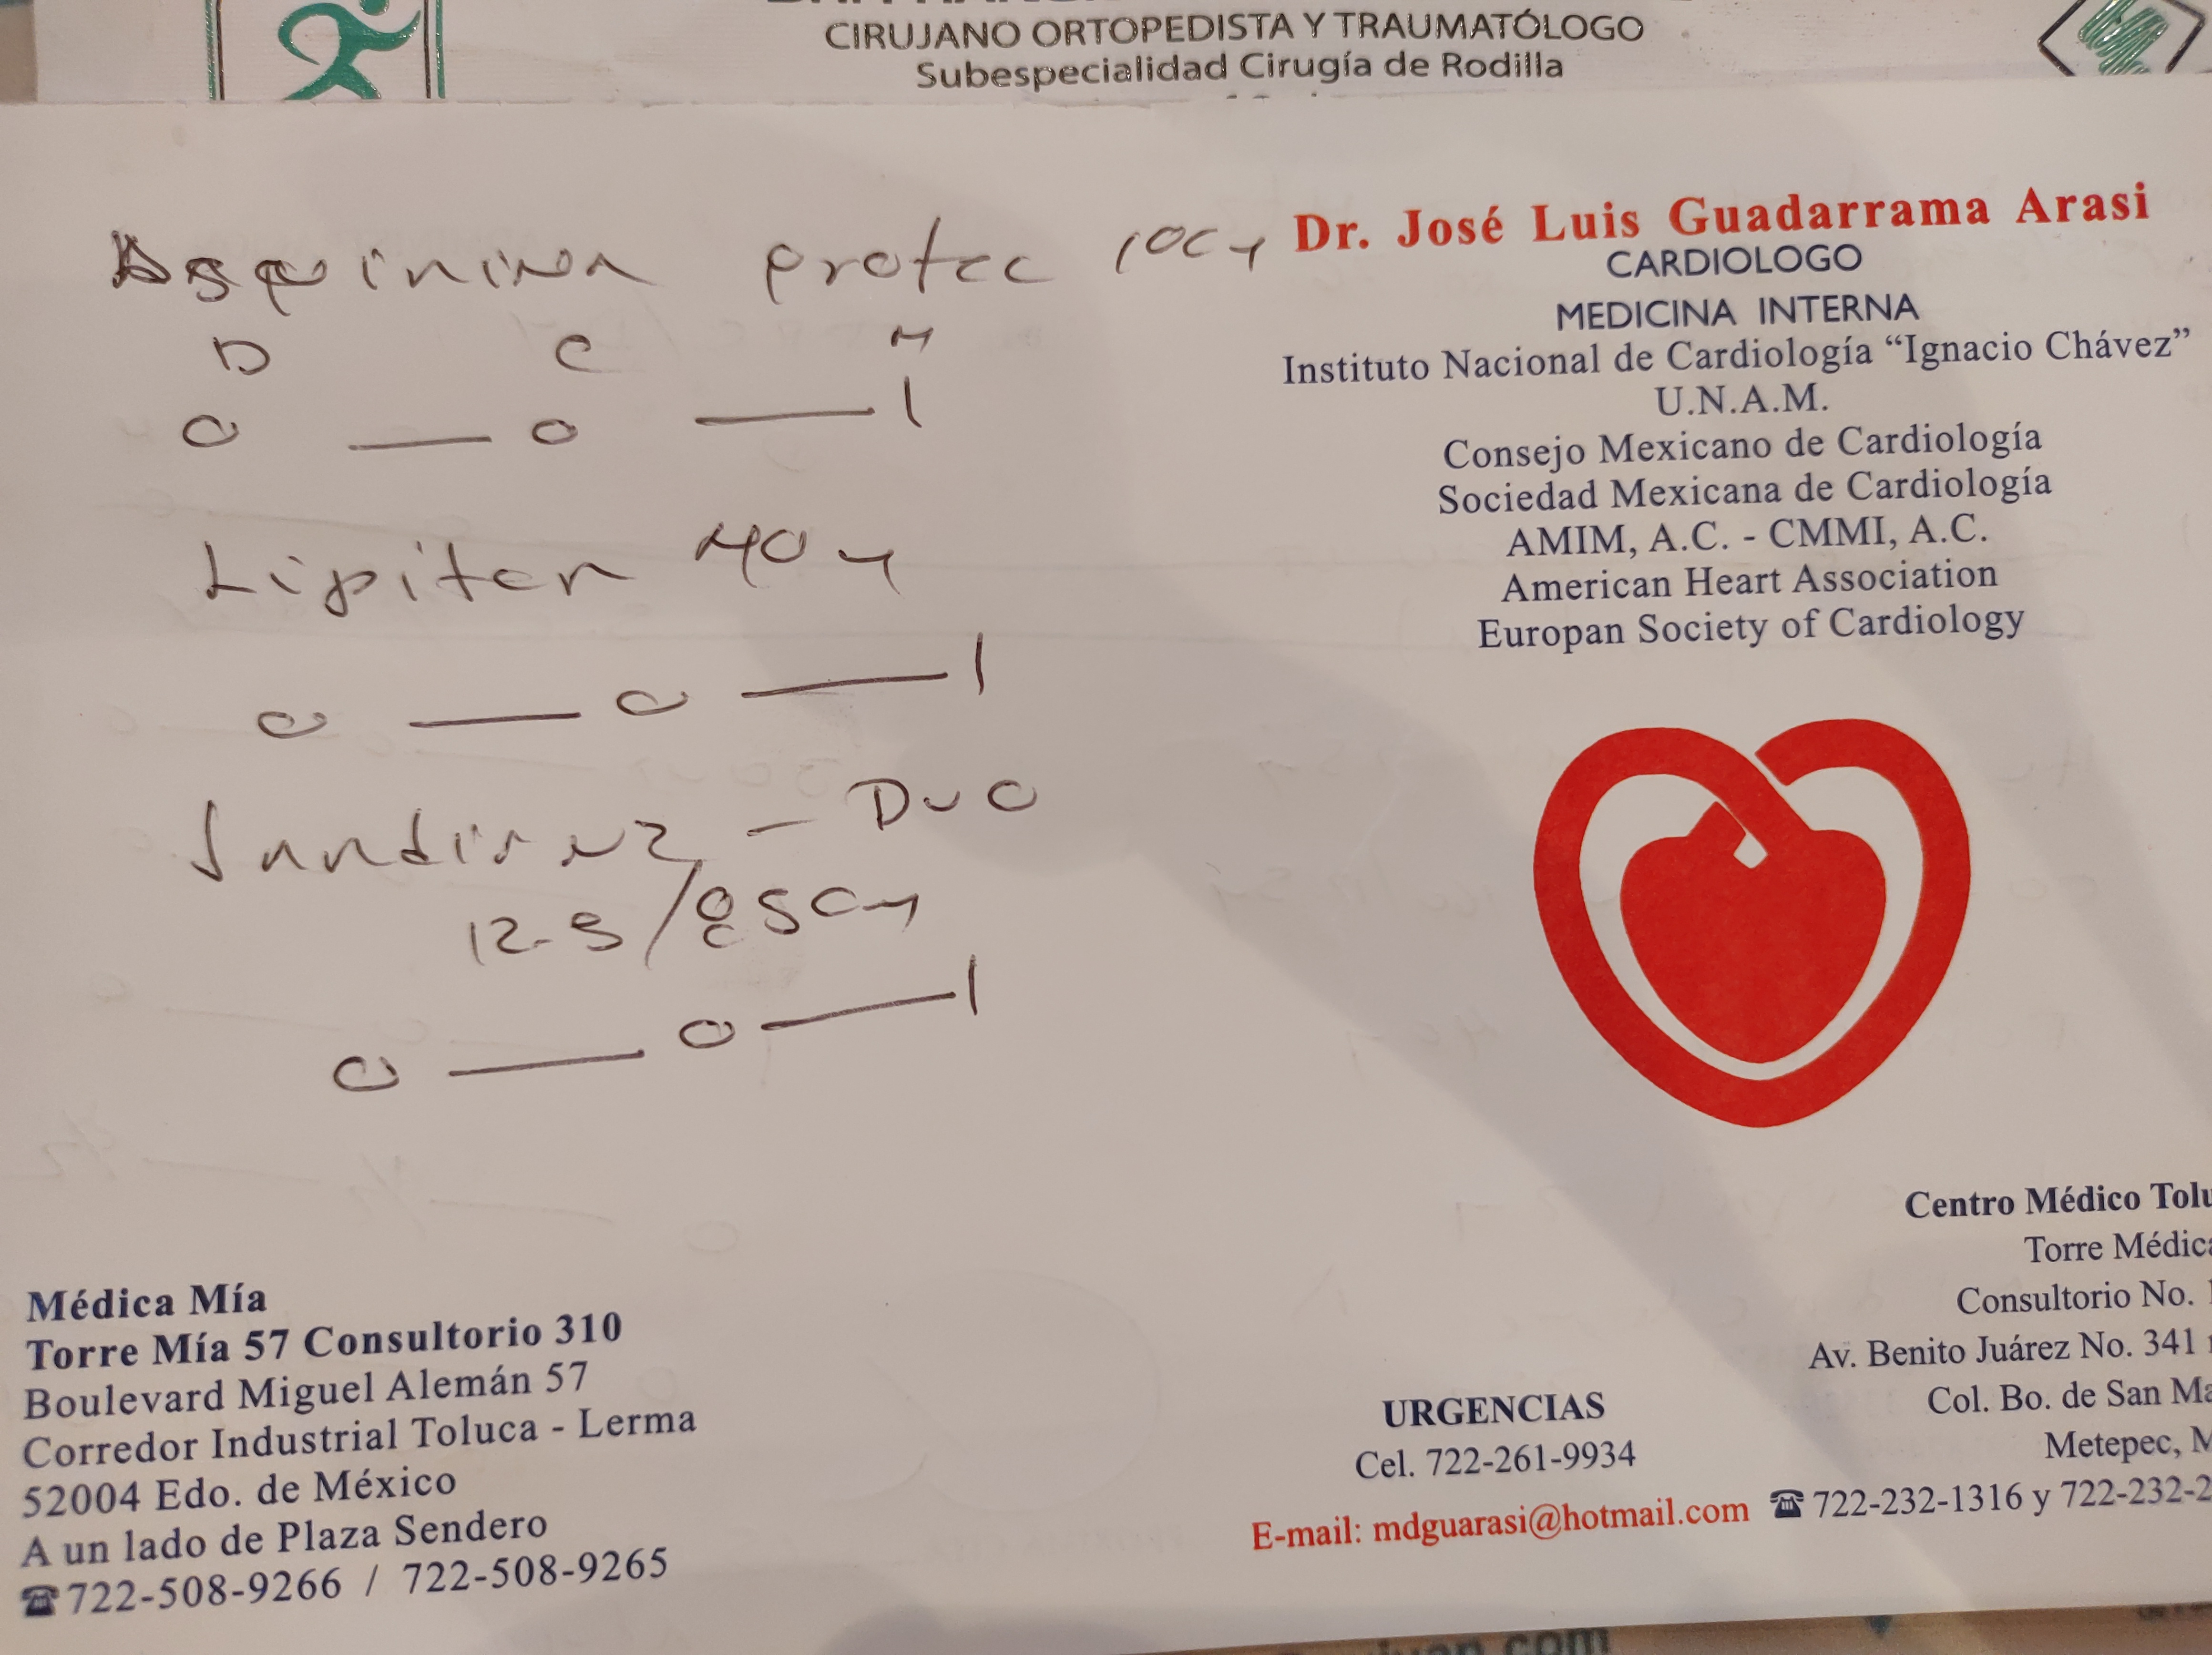 CIRUJANO ORTOPEDISTA Y TRAUMATÓLOGO
Subespecialidad Cirugía de Rodilla
Dr. José Luis Guadarrama Arasi
CARDIOLOGO
MEDICINA INTERNA
Instituto Nacional de Cardiología “Ignacio Chávez”
U.N.A.M.
Consejo Mexicano de Cardiología
Sociedad Mexicana de Cardiología
AMIM, A.C. - CMMI, A.C.
American Heart Association
Europan Society of Cardiology
protec
D C
O — O — 1
O — O — 1
- DUO
O — O — 1
Médica Mía
Torre Mía 57 Consultorio 310
Boulevard Miguel Alemán 57
Corredor Industrial Toluca - Lerma
52004 Edo. de México
A un lado de Plaza Sendero
☎722-508-9266 / 722-508-9265
URGENCIAS
Cel. 722-261-9934
E-mail: mdguarasi@hotmail.com
Centro Médico
Consultorio No.
Av. Benito Juárez No. 341
Col. Bo. de San
Metepec,
☎ 722-232-1316 y 722-232-2